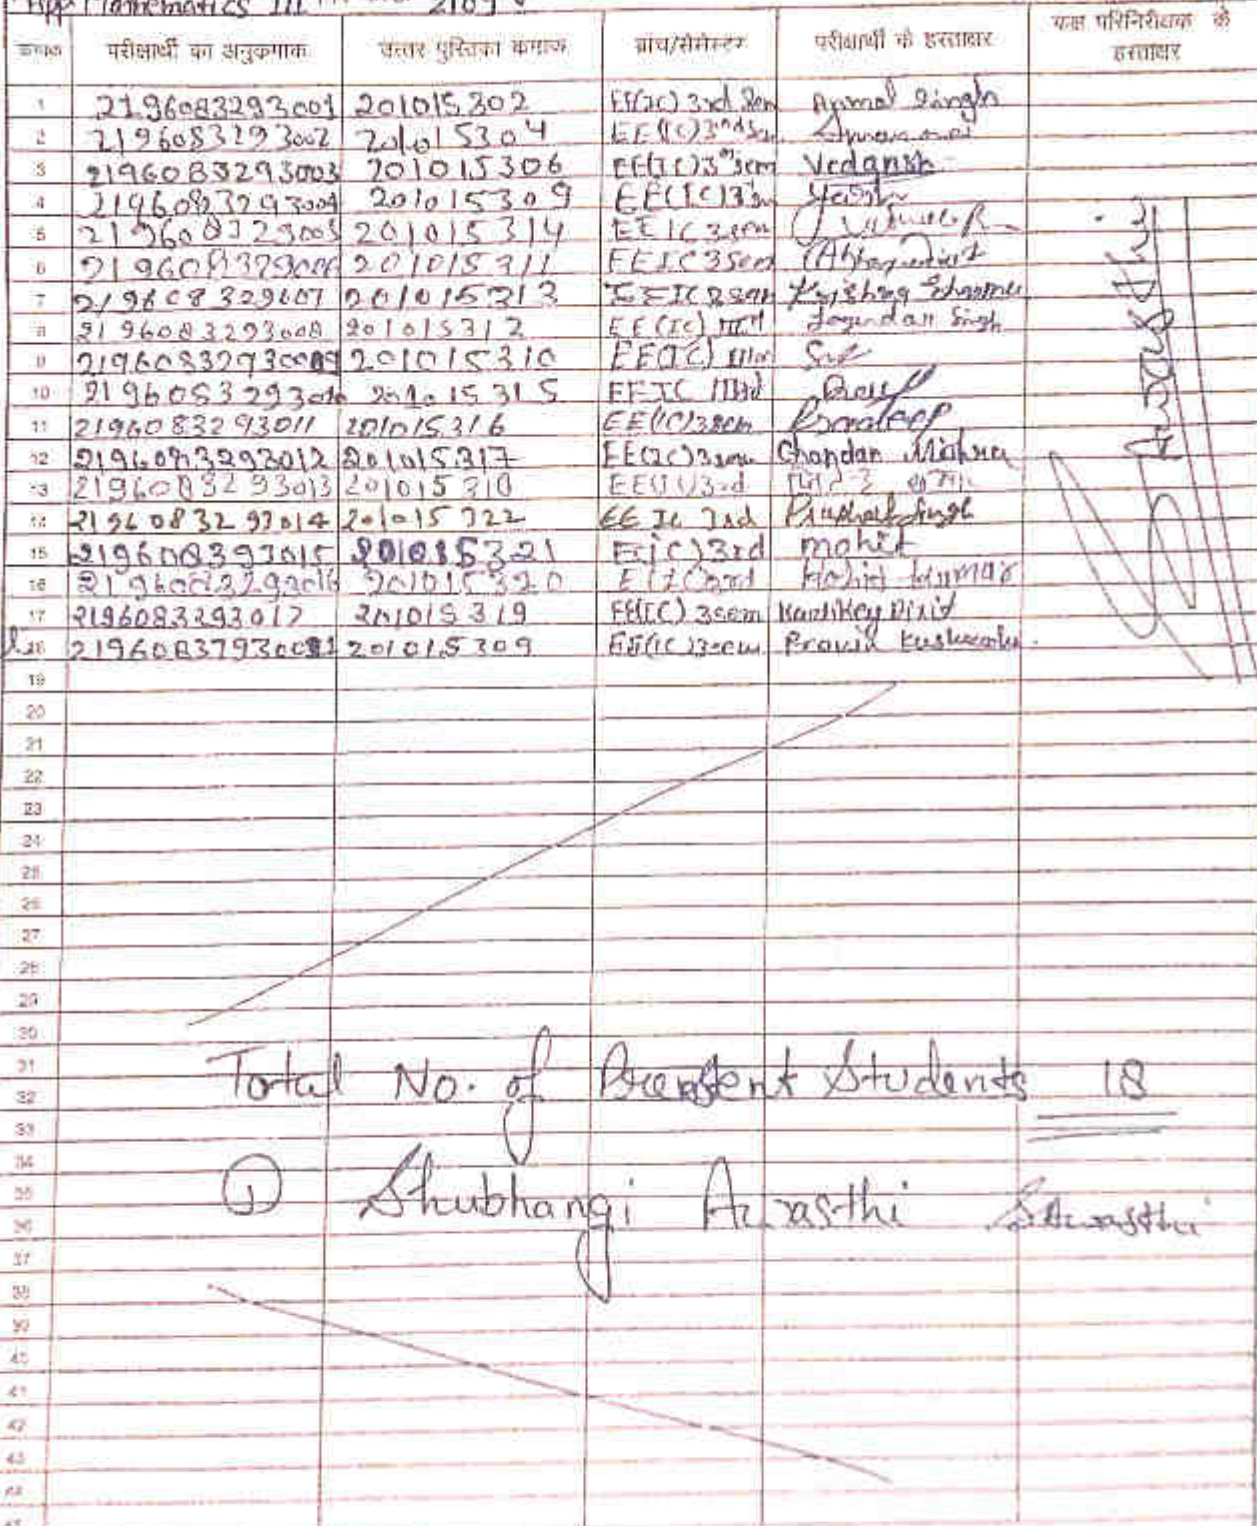 App Mathematics III
क्रमांक परीक्षार्थी का अनुक्रमांक उत्तर पुस्तिका क्रमांक ब्रांच/सेमेस्टर परीक्षार्थी के हस्ताक्षर कक्ष परिनिरीक्षक के हस्ताक्षर
1 2196083293001 201015302 EE(IC) 3rd Sem Anmol Singh
2 2196083293002 201015304 EE(IC) 3rd Sem
3 2196083293003 201015306 EE(IC) 3rd sem Vedansh
4 2196083293004 201015309 EE(IC) 3 Yash
5 219608329005 201015314 EE IC 3sem
6 219608329006 201015311 EEIC 3Sem
7 219608329607 201015313 EEIC 3sem Krishna Sharma
8 2196083293008 201015312 EE(IC) Singh
9 201015310 EE(IC) IIIrd
10 2196083293010 201015315 EEIC IIIrd
11 2196083293011 201015316 EE(IC) 3sem Pradeep
12 2196083293012 201015317 EE(IC) 3sem Chandan Mishra
13 2196083293013 201015318 EE(IC) 3rd
14 2196083293014 201015322 EE IC 3rd Prashant Singh
15 219608393015 201015321 E(IC) 3rd mohit
16 2196083293016 201015320 E(IC) 3rd Mohit Kumar
17 2196083293017 201015319 EE(IC) 3sem Kartikey Dixit
18 201015309 EE(IC) 3sem Pravin Kushwaha
19
20
21
22
23
24
25
26
27
28
29
30
31
Total No. of Present Students 18
32
33
34
35
① Shubhangi Awasthi SAwasthi
36
37
38
39
40
41
42
43
44